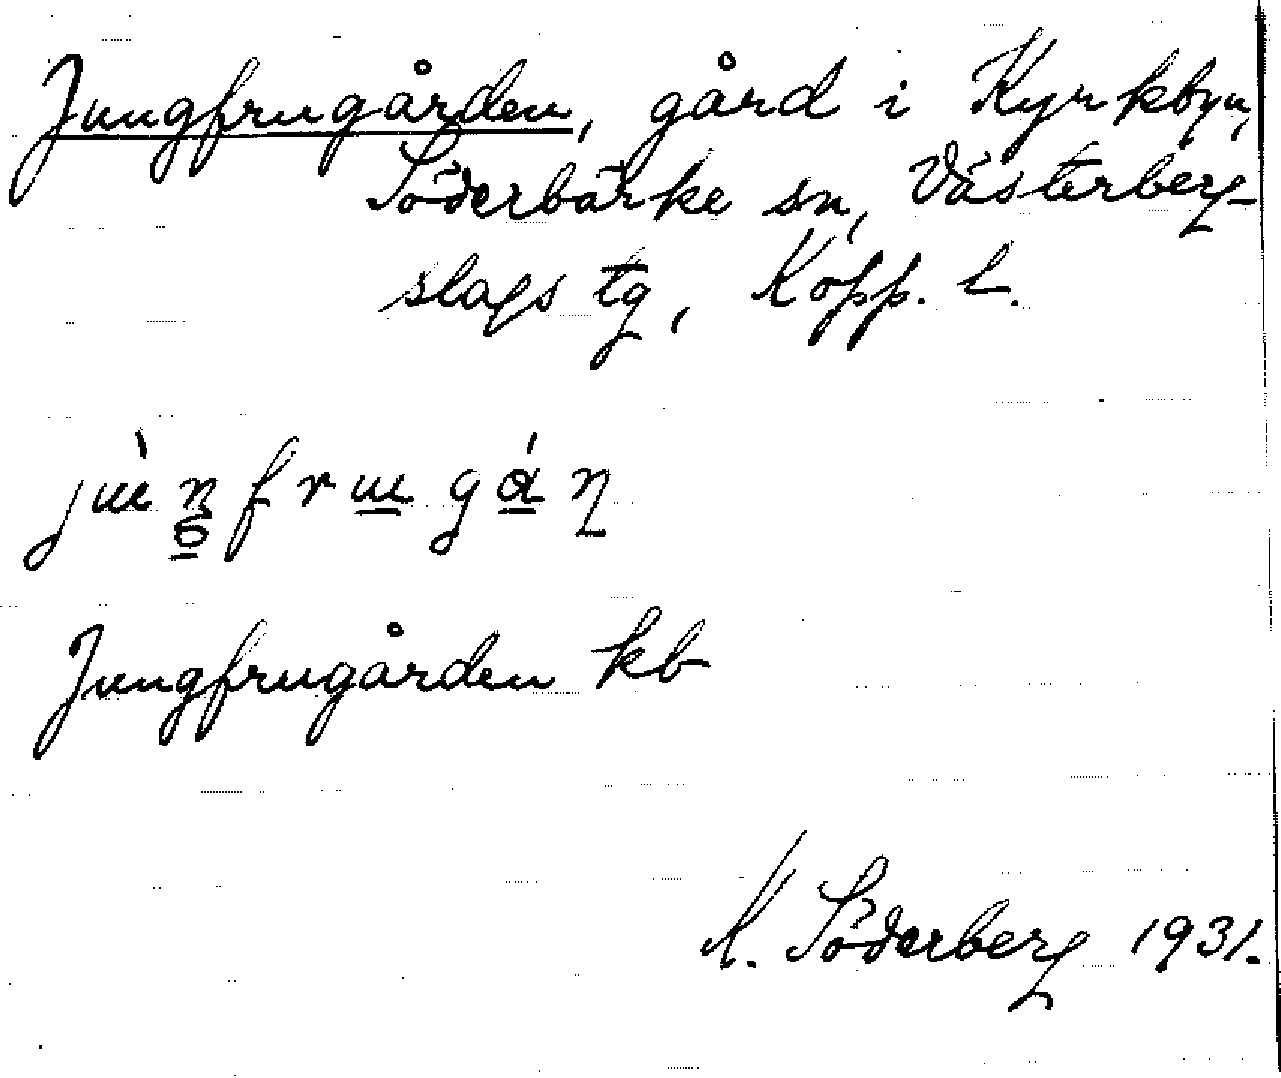 Jungfrugården, gård i Kyrkbyn,
Söderbärke sn, Västerberg-
slags tg, Kopp. l.
Jungfrugården kb
K. Söderberg 1931.